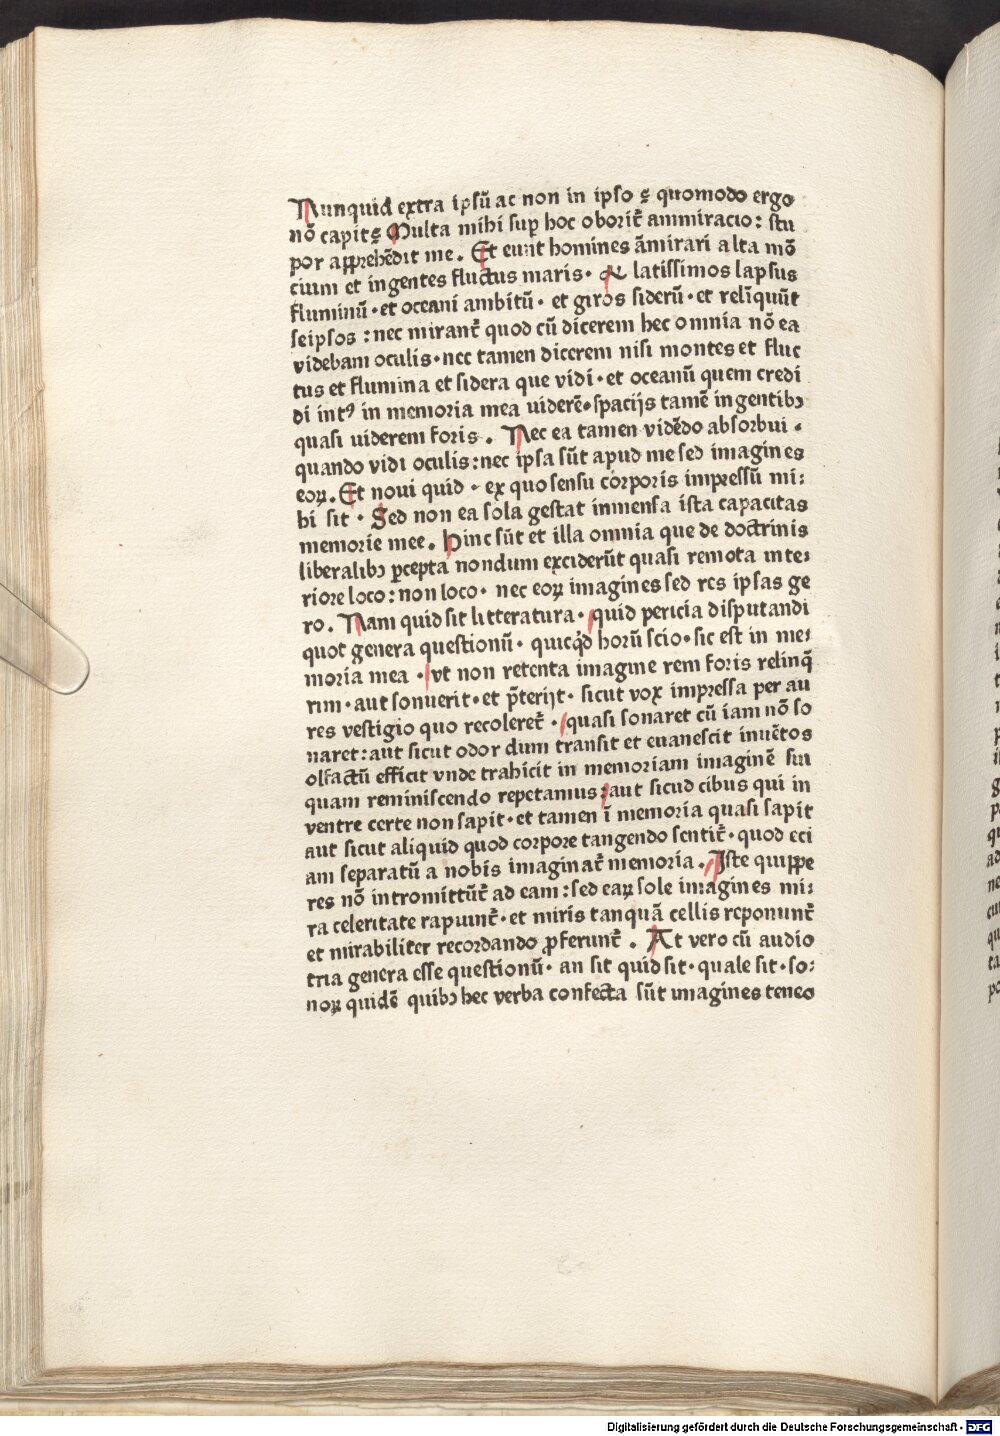 Nunquid extra ipsū ac non in ipso ꝫ quomodo ergo
nō capitꝫ Multa mihi suꝑ hoc oborit̄ ammiracio: stu
por apprehēdit me. Et eunt homines āmirari alta mō
cium et ingentes fluctus maris· & latissimos lapsus
fluminū· et oceani ambitū· et giros siderū· et reliquūt
seipsos: nec mirant̄ quod cū dicerem hec omnia nō ea
videbam oculis· nec tamen dicerem nisi montes et fluc
tus et flumina et sidera que vidi· et oceanū quem credi
di intꝰ in memoria mea uiderē· spacijs tamē ingentibꝫ
quasi uiderem foris. Nec ea tamen vidēdo absorbui·
quando vidi oculis: nec ipsa sūt apud me sed imagines
eoꝝ. Et noui quid· ex quo sensu corporis impressū mi:
hi sit· Sed non ea sola gestat inmensa ista capacitas
memorie mee. Hinc sūt et illa omnia que de doctrinis
liberalibꝫ ꝑcepta nondum exciderūt quasi remota inte:
riore loco: non loco· nec eoꝝ imagines sed res ipsas ge
ro. Nam quid sit litteratura· quid pericia disputandi
quot genera questionū· quicq̇d horū scio· sic est in me:
moria mea· vt non retenta imagine rem foris relinq̄
rim· aut sonuerit· et p̄terijt· sicut vox impressa per au
res vestigio quo recoleret̄· quasi sonaret cū iam nō so
naret: aut sicut odor dum transit et euanescit in uētos
olfactū efficit vnde trahicit in memoriam imaginē sui
quam reminiscendo repetamus: aut sicud cibus qui in
ventre certe non sapit· et tamen ī memoria quasi sapit
aut sicut aliquid quod corpore tangendo sentit̄· quod eci
am separatū a nobis imaginat̄ memoria. Iste quippe
res nō intromittūt̄ ad eam: sed eaꝝ sole imagines mi:
ra celeritate rapiunt̄· et miris tanquā cellis reponunt̄
et mirabiliter recordando ꝓferunt̄. At vero cū audio
tria genera esse questionū· an sit quid sit· quale sit· so:
noꝝ quidē quibꝫ hec verba confecta sūt imagines teneo
Digitalisierung gefördert durch die Deutsche Forschungsgemeinschaft - DFG